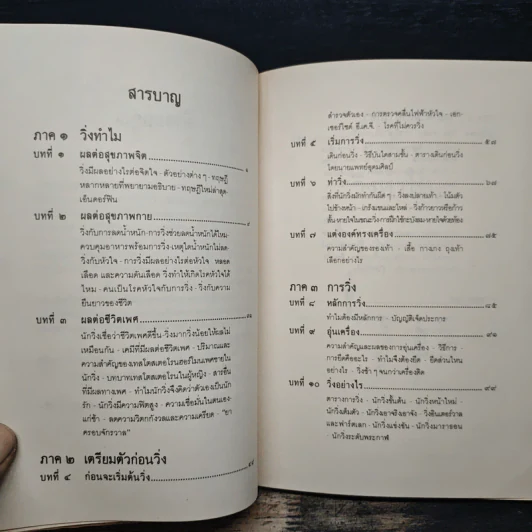 สารบาญ
ภาค ๑ วิ่งทำไม
บทที่ ๑ ผลต่อสุขภาพจิต ๑
วิ่งมีผลอย่างไรต่อจิตใจ - ตัวอย่างต่าง ๆ - ทฤษฎี
หลากหลายที่พยายามอธิบาย - ทฤษฎีใหม่ล่าสุด-
เอ็นดอร์ฟิน
บทที่ ๒ ผลต่อสุขภาพกาย
วิ่งกับการลดน้ำหนัก - วิ่งช่วยลดน้ำหนักได้ไหม-
ควบคุมอาหารพร้อมการวิ่ง - เหตุใดน้ำหนักไม่ลด-
วิ่งกับหัวใจ - การวิ่งมีผลอย่างไรต่อหัวใจ หลอด
เลือด และความดันเลือด - วิ่งทำให้เกิดโรคหัวใจได้
ไหม - คนเป็นโรคหัวใจกับการวิ่ง - วิ่งกับความ
ยืนยาวของชีวิต
บทที่ ๓ ผลต่อชีวิตเพศ
นักวิ่งเชื่อว่าชีวิตเพศดีขึ้น - วิ่งมากวิ่งน้อยให้ผลไม่
เหมือนกัน - เคมีที่มีผลต่อชีวิตเพศ - ปริมาณและ
ความสำคัญของเทสโตสเตอโรนฮอร์โมนเพศชายใน
นักวิ่ง - บทบาทเทสโตสเตอโรนในผู้หญิง - สารอื่น
ที่มีผลทางเพศ - ทำไมนักวิ่งจึงคิดว่าตัวเองเป็นนัก
รัก - นักวิ่งมีความฟิตสูง - ความเชื่อมั่นในตนเอง-
แก่ช้า - ลดความวิตกกังวลและความเครียด - "ยา
ครอบจักรวาล"
ภาค ๒ เตรียมตัวก่อนวิ่ง
บทที่ ๔ ก่อนจะเริ่มต้นวิ่ง
สำรวจตัวเอง - การตรวจคลื่นไฟฟ้าหัวใจ - เอก-
เซอร์ไซส์ อี.เค.จี. - โรคที่ไม่ควรวิ่ง
บทที่ ๕ เริ่มการวิ่ง ๕๗
เดินก่อนวิ่ง - วิธีบันไดสามขั้น - ตารางเดินก่อนวิ่ง
โดยนายแพทย์อุดมศิลป์
บทที่ ๖ ท่าวิ่ง ๖๗
สิ่งที่นักวิ่งมักทำกันผิด ๆ - วิ่งลงปลายเท้า - โน้มตัว
ไปข้างหน้า - เกร็งแขนและไหล่ - วิ่งก้าวยาวหรือก้าว
สั้น
บทที่ ๗ แต่งองค์ทรงเครื่อง
ความสำคัญของรองเท้า - เสื้อ กางเกง ถุงเท้า
เลือกอย่างไร
ภาค ๓ การวิ่ง
บทที่ ๘ หลักการวิ่ง ๘๕
ทำไมต้องมีหลักการ - บัญญัติเจ็ดประการ
บทที่ ๙ อุ่นเครื่อง ๙๑
ความสำคัญและผลของการอุ่นเครื่อง - วิธีการ -
การยืดคืออะไร - ทำไมจึงต้องยืด - ยืดส่วนไหน
อย่างไร - วิ่งช้า ๆ จนกว่าเครื่องติด
บทที่ ๑๐ วิ่งอย่างไร ๙๙
ตารางการวิ่ง - นักวิ่งขั้นต้น - นักวิ่งหน้าใหม่ -
นักวิ่งเต็มตัว - นักวิ่งอาจริงเอาจัง - วิ่งอินเตอร์วาล
และฟาร์ตเลก - นักวิ่งแข่งขัน - นักวิ่งมาราธอน -
นักวิ่งระดับพระกาฬ